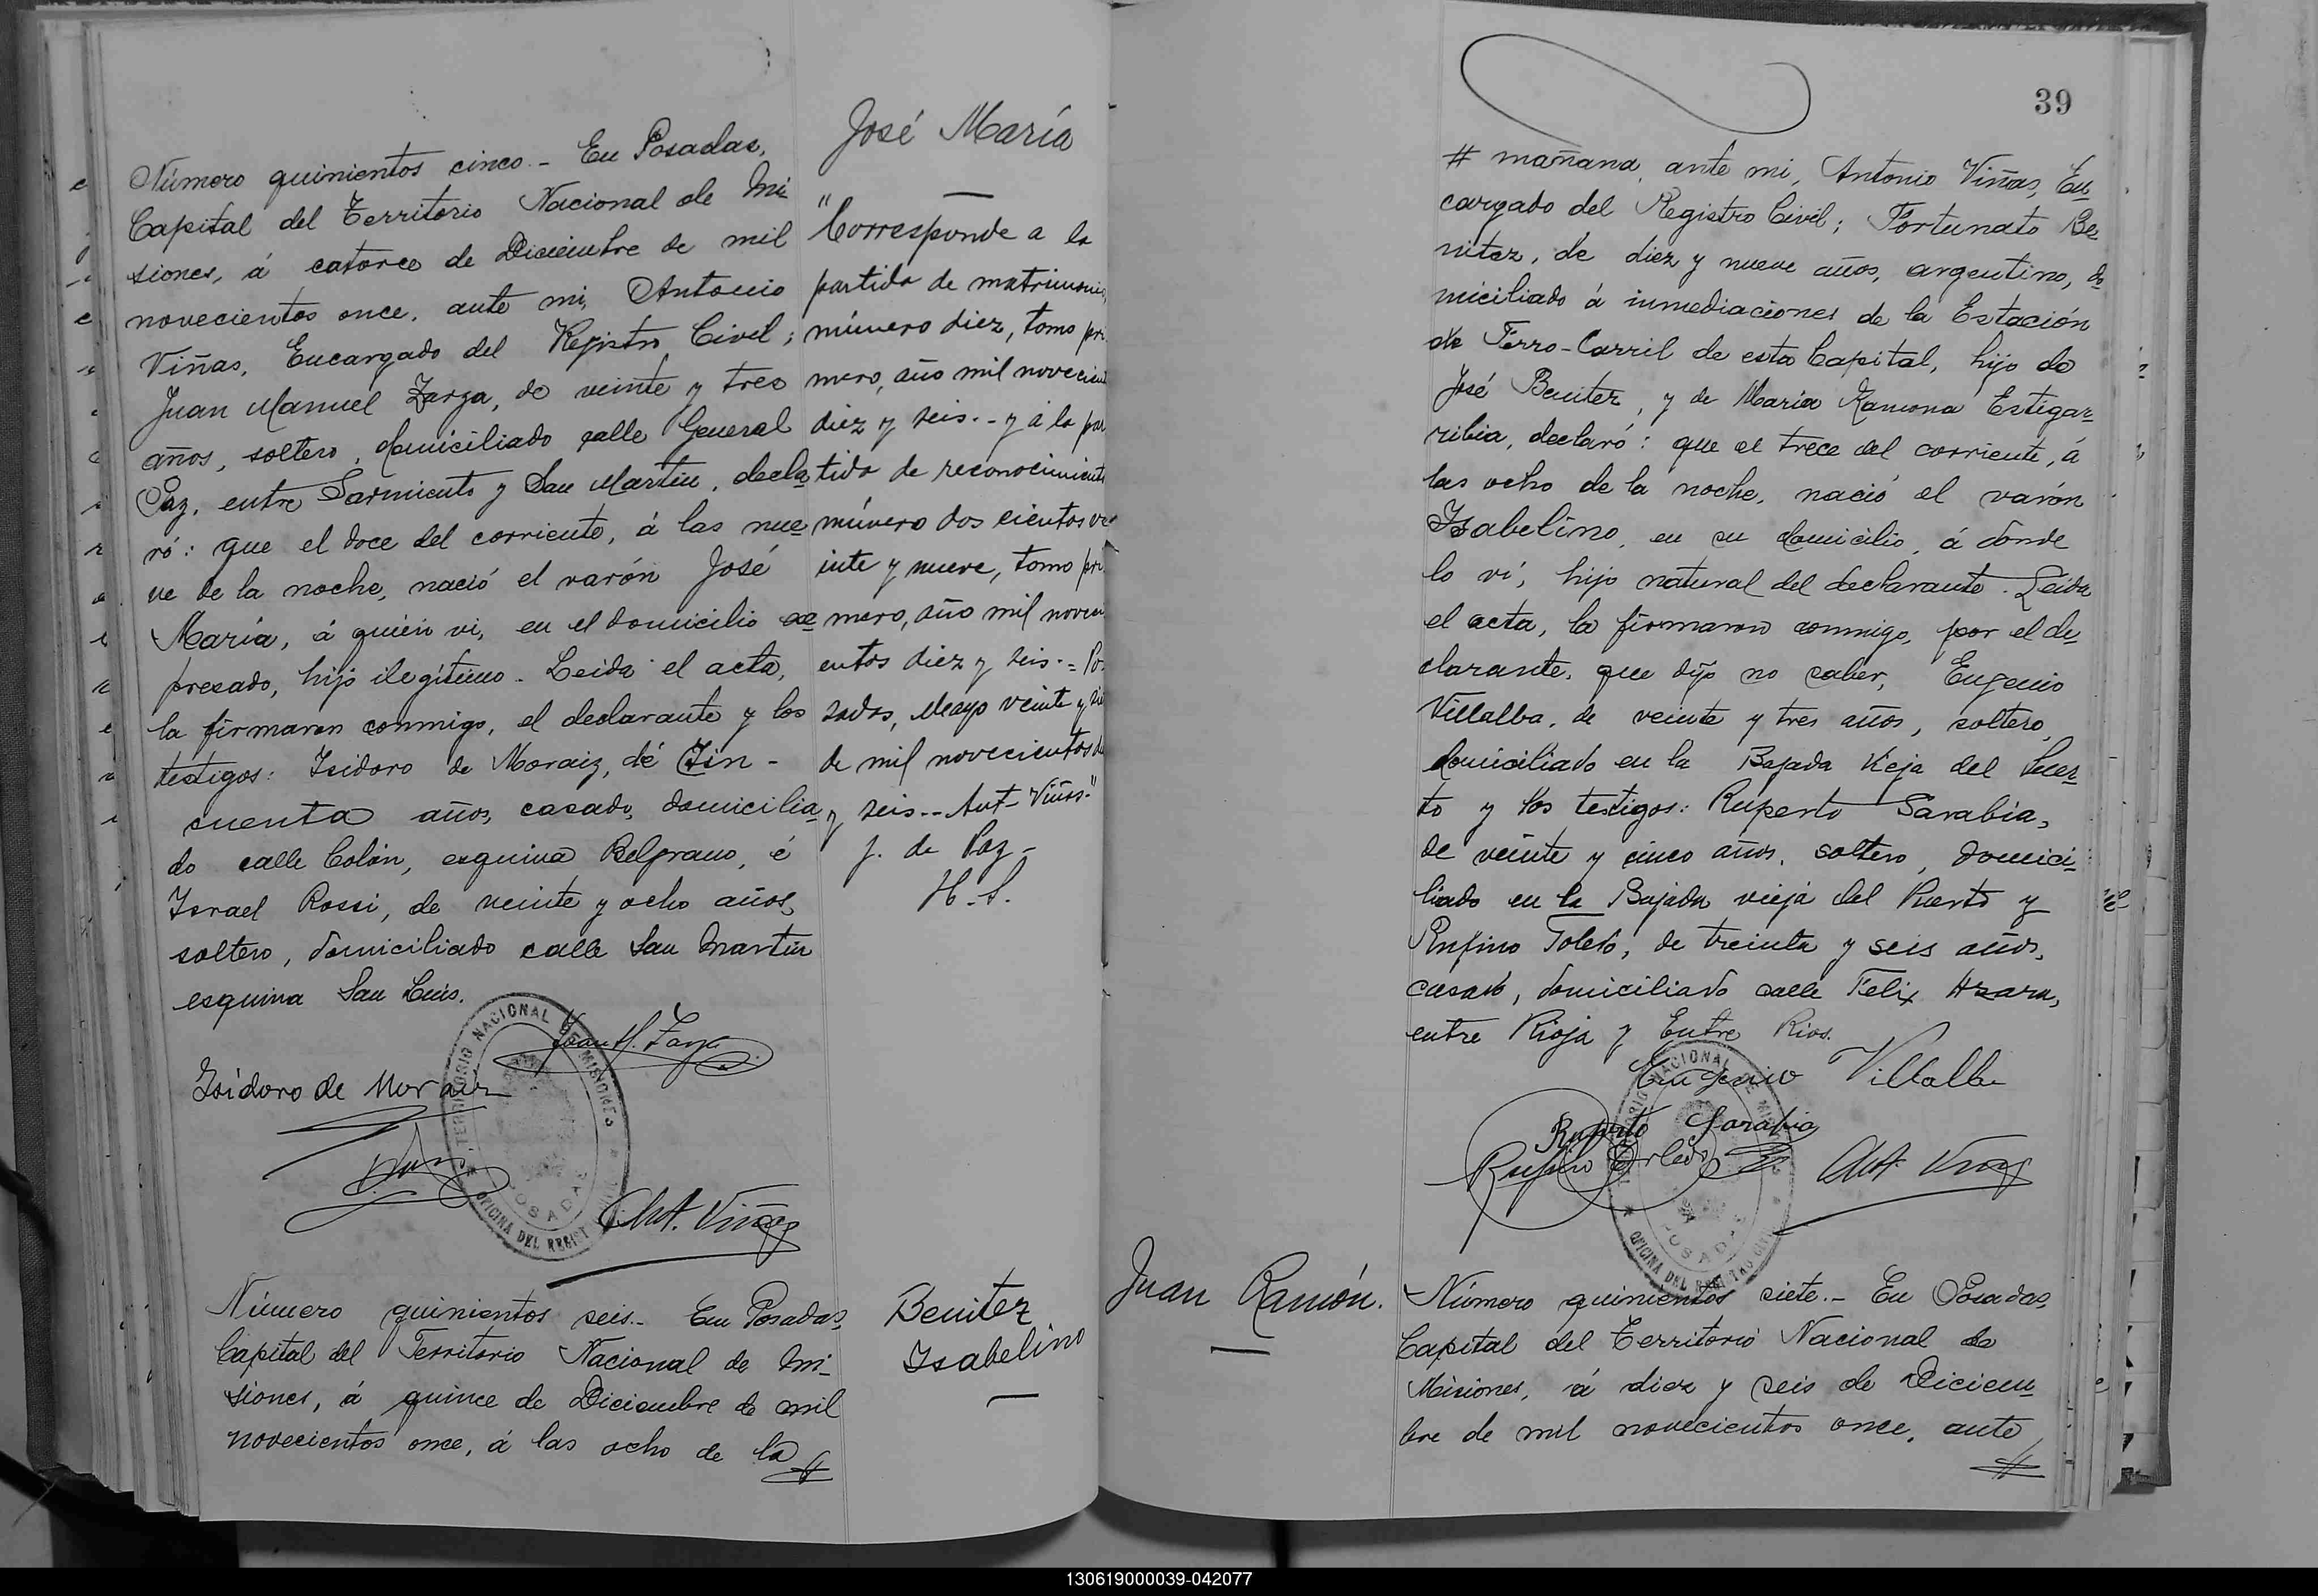 Número quinientos cinco.- En Posadas,
Capital del Territorio Nacional de Mi
siones, á catorce de Diciembre de mil
novecientos once, ante mi, Antonio
Viñas, Encargado del Registro Civil;
Juan Manuel Zarza, de veinte y tres
años, soltero, domiciliado calle General
Paz, entre Sarmiento y San Martin, decla
ró: que el doce del corriente, á las nue
ve de la noche, nació el varón José
María, á quien vi, en el domicilio ex
presado, hijo ilegítimo. Leida el acta,
la firmaron conmigo, el declarante y los
testigos: Isidoro de Moraiz, de Cin-
cuenta años, casado, domicilia
do calle Colón, esquina Belgrano, é
Israel Rossi, de veinte y ocho años,
soltero, domiciliado calle San Martin
esquina San Luis.
Juan M. Zarza
Isidoro de Moraiz
Ant. Viñas
TERRITORIO NACIONAL DE MISIONES
OFICINA DEL REGISTRO CIVIL
POSADAS
José María
"Corresponde a la
partida de matrimonio,
número diez, tomo pri
mero, año mil novecient
diez y seis.- y á la par
tida de reconocimiento
número dos cientos ve
inte y nueve, tomo pri
mero, año mil noveci
entos diez y seis.= Po
sadas, Mayo veinte y
de mil novecientos
y seis.- Ant- Viñas."
J. de Paz-
H.S.
Número quinientos seis.- En Posadas,
Capital del Territorio Nacional de Mi-
siones, á quince de Diciembre de mil
novecientos once, á las ocho de la #
Benitez
Isabelino
39
# mañana, ante mi, Antonio Viñas, En
cargado del Registro Civil; Fortunato Be
nitez, de diez y nueve años, argentino, do
miciliado á inmediaciones de la Estación
de Ferro-Carril de esta Capital, hijo de
José Benitez, y de María Ramona Estigar
ribia, declaró: que el trece del corriente, á
las ocho de la noche, nació el varón
Isabelino, en su domicilio, á donde
lo ví, hijo natural del declarante. Leida
el acta, la firmaron conmigo, por el de
clarante, que dijo no saber, Eugenio
Villalba, de veinte y tres años, soltero,
domiciliado en la Bajada Vieja del Puer
to y los testigos: Ruperto Sarabia,
de veinte y cinco años, soltero, domici-
liado en la Bajada vieja del Puerto y
Rufino Toledo, de treinta y seis años,
casado, domiciliado calle Felix Azara,
entre Rioja y Entre Rios.
Eugenio Villalba
Ruperto Sarabia
Rufino Toledo
Ant. Viñas
TERRITORIO NACIONAL DE MISIONES
OFICINA DEL REGISTRO CIVIL
POSADAS
Juan Ramón.
Número quinientos siete.- En Posadas,
Capital del Territorio Nacional de
Misiones, á diez y seis de Diciem
bre de mil novecientos once, ante
#
130619000039-042077